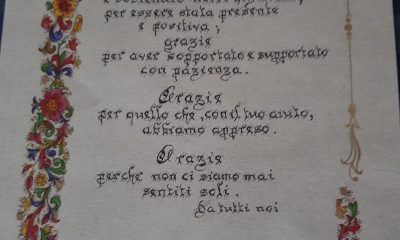 per essere stata presente
e positiva ;
grazie
per aver sopportato e supportato
con pazienza .
Grazie
per quello che , con il tuo aiuto,
abbiamo appreso .
Grazie
perche non ci siamo mai
sentiti soli .
Da tutti noi